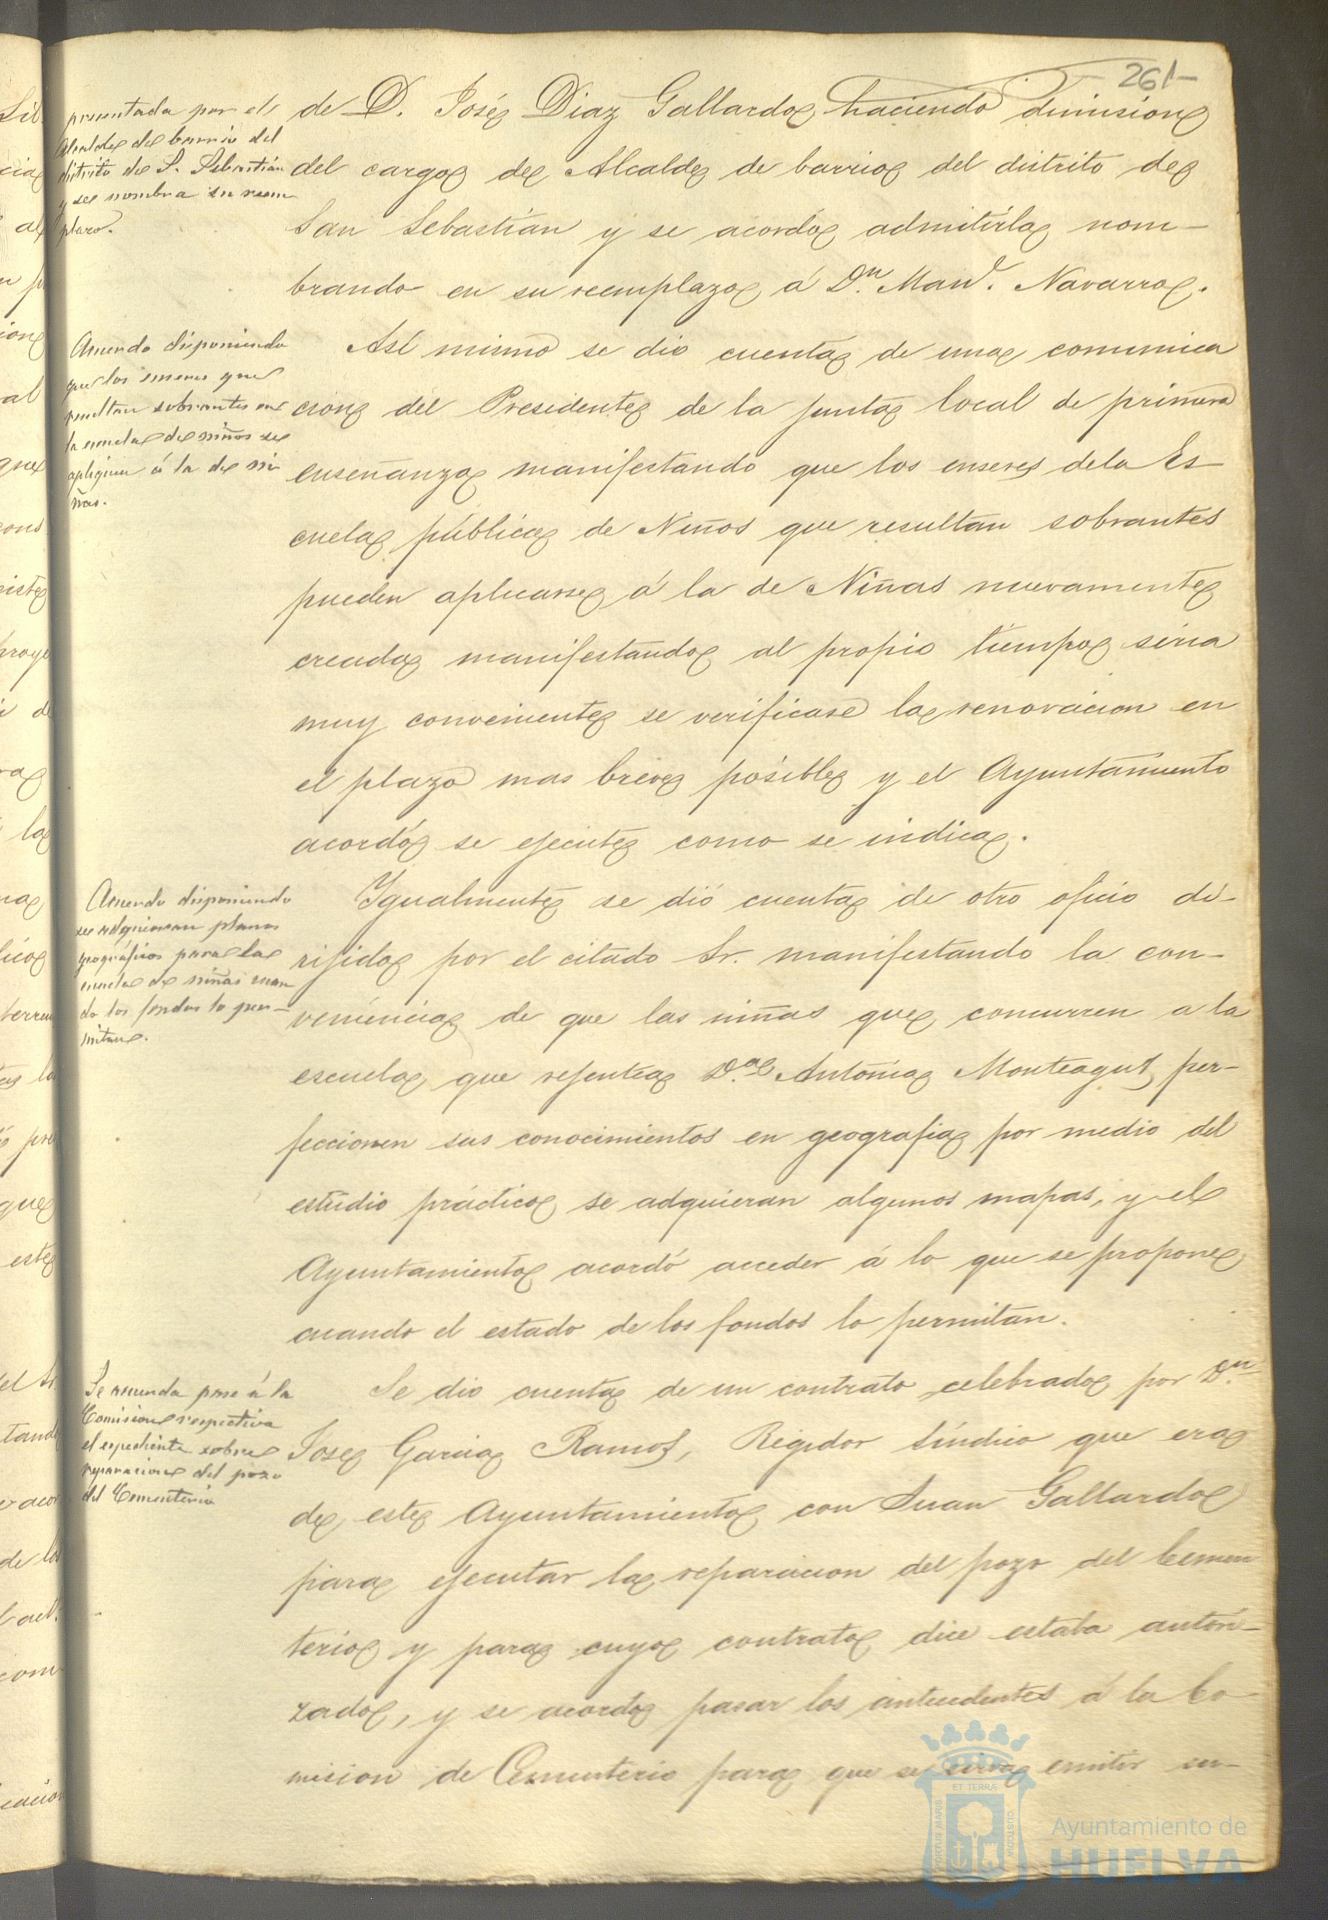 261
presentada por el
Alcalde de barrio del
distrito de S. Sebastián
y se nombra su reem
plazo.
de D. José Diaz Gallardo haciendo dimision
del cargo de Alcalde de barrio del distrito de
San Sebastián y se acordó admitirla nom-
brando en su reemplazo á Dn. Manl. Navarro.
Acuerdo disponiendo
que los enseres que
resultan sobrantes en
la escuela de niños se
apliquen á la de ni
ñas.
Así mismo se dio cuenta de una comunica
cion del Presidente de la junta local de primera
enseñanza manifestando que los enseres dela Es-
cuela pública de Niños que resultan sobrantes
pueden aplicarse á la de Niñas nuevamente
creada manifestando al propio tiempo seria
muy conveniente se verificase la renovacion en
el plazo mas breve posible y el Ayuntamiento
acordó se ejecute como se indica.
Acuerdo disponiendo
se adquieran planos
geográficos para la
escuela de niñas cuan
do los fondos lo per-
mitan.
Igualmente se dió cuenta de otro oficio di-
rijido por el citado Sr. manifestando la con-
veniencia de que las niñas que concurren a la
escuela que rejentea Da. Antonia Monteagut per-
feccionen sus conocimientos en geografia por medio del
estudio práctico se adquieran algunos mapas, y el
Ayuntamiento acordó acceder á lo que se propone
cuando el estado de los fondos lo permitan.
Se acuerda pase á la
Comision respectiva
el espediente sobre
reparacion del pozo
del Cementerio
Se dio cuenta de un contrato celebrado por Dn.
Jose Garcia Ramos, Regidor Síndico que era
de este Ayuntamiento con Juan Gallardo
para ejecutar la reparacion del pozo del Cemen
terio y para cuyo contrato dice estaba autori-
zado, y se acordó pasar los antecedentes á la Co-
mision de Cementerio para que se sirva emitir su-
ET TERRÆ
PORTUS MARIS
CUSTODIA
Ayuntamiento de
HUELVA